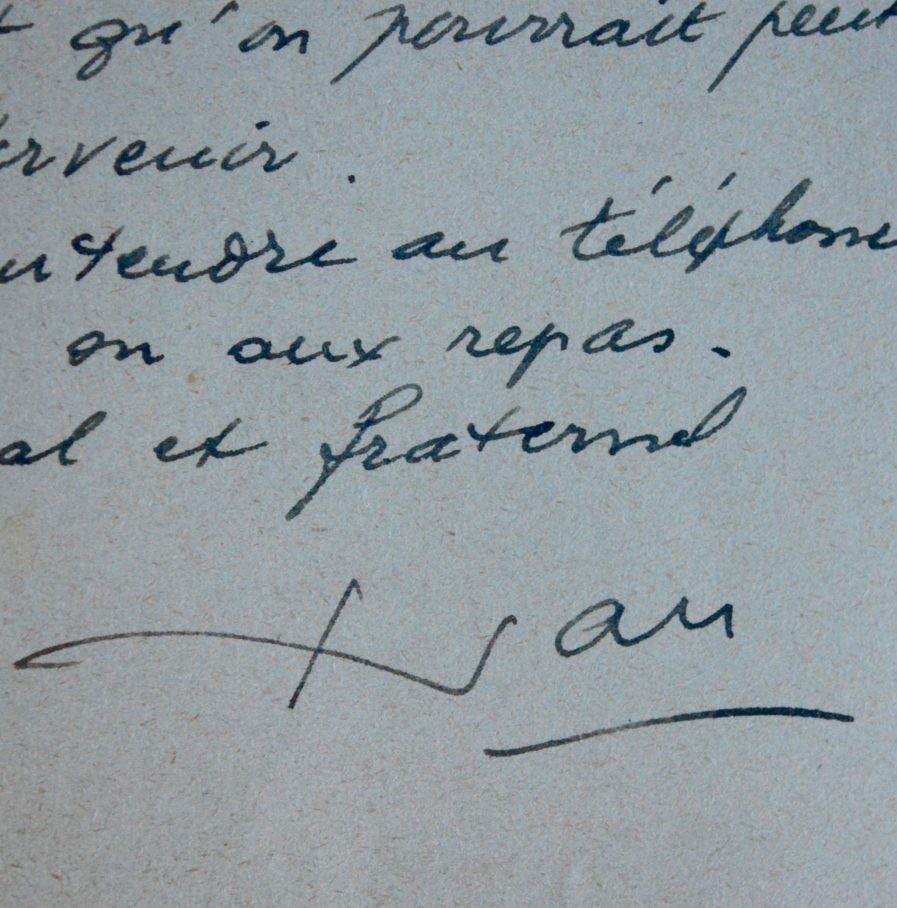 qu'on pourrait peut
ervenir.
entendre au téléphone
ou aux repas.
al et fraternel